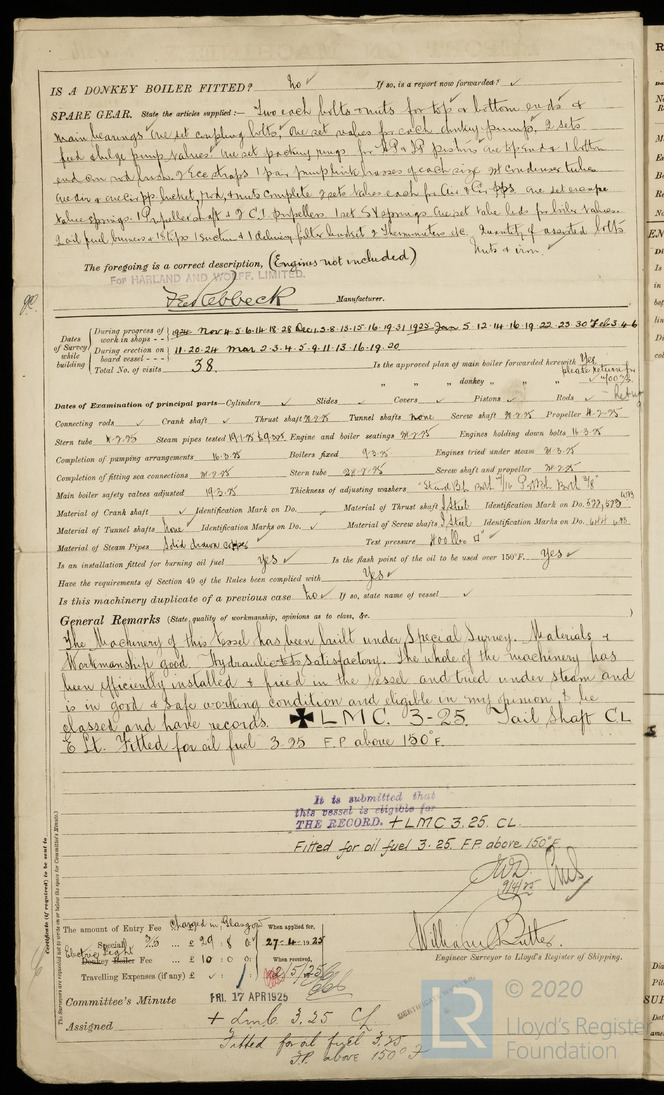 IS A DONKEY BOILER FITTED? No ✓ If so, is a report now forwarded? ✓
SPARE GEAR. State the articles supplied:— Two each bolts & nuts for top & bottom ends &
main bearings one set coupling bolts, one set valves for each donkey pump, 2 sets
feed & bilge pump valves. one set packing rings for HP & LP pistons one top end & 1 bottom
end con rod bush. 2 Ecc straps 1 pair pump link brasses of each size Condenser tubes
one air & one bucket, rod, & nuts complete 2 sets valves each for Air & Cir pps one set escape
valve springs. 1 Propeller shaft & 2 C.I. propellers. 1 set S V springs. One set valve lids for boiler valves.
2 oil fuel burners & tips 1 suction & 1 delivery filter basket 2 Thermometers etc. Quantity of assorted bolts
nuts & iron.
The foregoing is a correct description, (Engines not included)
For HARLAND AND WOLFF, LIMITED.
F E Rebbeck Manufacturer.
Dates of Survey while building
During progress of work in shops - - 1924 Nov 4.5.6.14.18.28 Dec 1.3.8.13.15.16.19.31 1925 Jan 5.12.14.16.19.22.23.30 Feb 3.4.6
During erection on board vessel - - - 11.20.24 Mar 2.3.4.5.9.11.13.16.19.20
Total No. of visits 38.
Is the approved plan of main boiler forwarded herewith Yes
please return for
" " " donkey " " " ✓
Dates of Examination of principal parts—Cylinders ✓ Slides ✓ Covers ✓ Pistons ✓ Rods ✓
Connecting rods ✓ Crank shaft ✓ Thrust shaft Tunnel shafts none Screw shaft Propeller
Stern tube Steam pipes tested Engine and boiler seatings Engines holding down bolts 16.3.25
Completion of pumping arrangements 16.3.25 Boilers fixed 9.3.25 Engines tried under steam
Completion of fitting sea connections Stern tube Screw shaft and propeller
Main boiler safety valves adjusted 19.3.25 Thickness of adjusting washers
Material of Crank shaft ✓ Identification Mark on Do. Material of Thrust shaft I Steel Identification Mark on Do.
Material of Tunnel shafts none Identification Marks on Do. ✓ Material of Screw shafts I Steel Identification Marks on Do.
Material of Steam Pipes Solid drawn copper ✓ Test pressure 400 lbs □" ✓
Is an installation fitted for burning oil fuel Yes ✓ Is the flash point of the oil to be used over 150°F. Yes ✓
Have the requirements of Section 49 of the Rules been complied with Yes ✓
Is this machinery duplicate of a previous case No ✓ If so, state name of vessel ✓
General Remarks (State quality of workmanship, opinions as to class, &c.)
The Machinery of this Vessel has been built under Special Survey. Materials &
Workmanship good. Hydraulic tests satisfactory. The whole of the machinery has
been efficiently installed & fixed in the vessel and tried under steam and
is in good & safe working condition and eligible in my opinion to be
classed and have records. ✠ LMC. 3-25. Tail Shaft CL
& Lt. Fitted for oil fuel 3.25 F.P above 150°F.
It is submitted that
this vessel is eligible for
THE RECORD. + LMC 3.25. CL.
Fitted for oil fuel 3.25. F.P. above 150°F
9/4/25
William Butler.
Engineer Surveyor to Lloyd's Register of Shipping.
Certificate (if required) to be sent to
The Surveyors are requested not to write on or below the space for Committee's Minute.
The amount of Entry Fee Charged in Glasgow When applied for,
Special 25 ... £ 29 : 8 : 0 27-4-1925
Electric Light
Donkey Boiler Fee ... £ 10 : 0 : 0 When received,
Travelling Expenses (if any) £ ✓ : 2/5/25
Committee's Minute FRI. 17 APR 1925
Assigned + LMC 3.25 CL
Fitted for oil fuel 3.25
F.P. above 150° F
LR
© 2020
Lloyd's Registe
Foundation